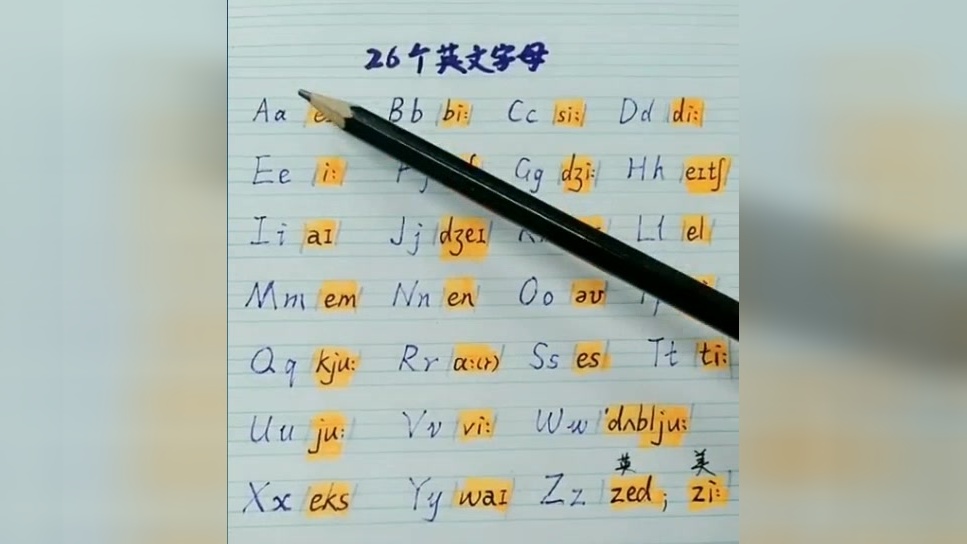 26个英文字母
Aa Bb /bi:/ Cc /si:/ Dd /di:/
Ee /i:/ Gg /dʒi:/ Hh /eɪtʃ/
Ii /aɪ/ Jj /dʒeɪ/ Ll /el/
Mm /em/ Nn /en/ Oo /əʊ/
Qq /kju:/ Rr /ɑ:(r)/ Ss /es/ Tt /ti:/
Uu /ju:/ Vv /vi:/ Ww /'dʌblju:/
英 美
Xx /eks/ Yy /waɪ/ Zz /zed; zi:/